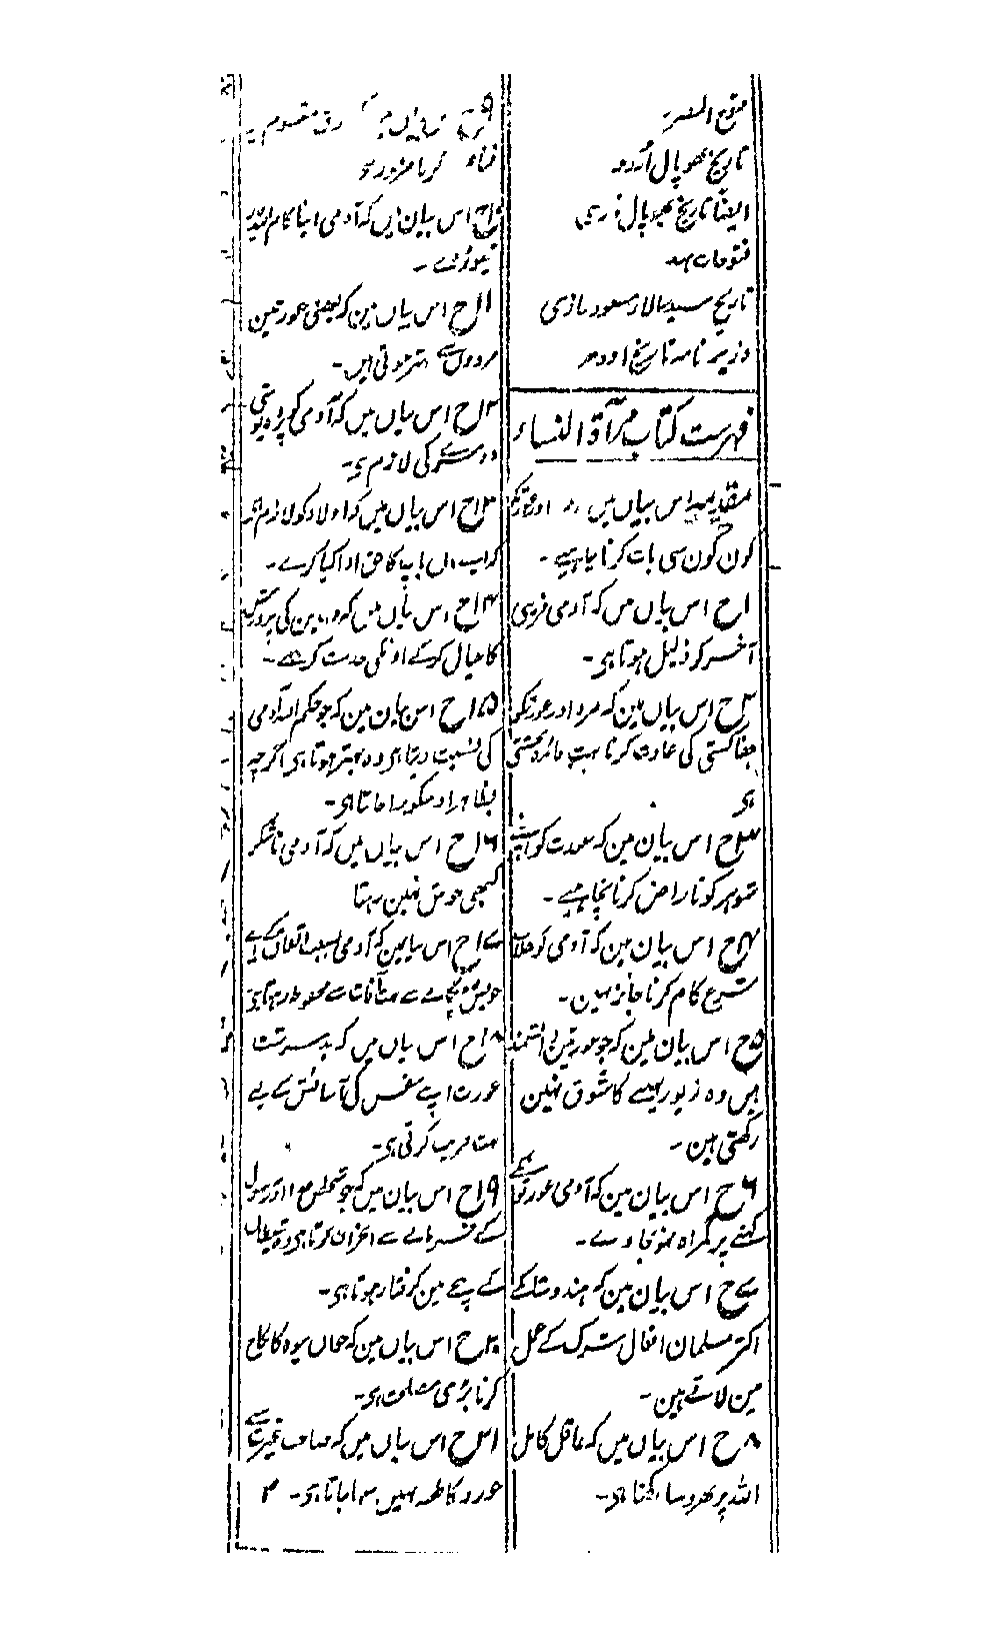 تاریخ بھوپال اُردو
ایضاً تاریخ بھوپال
فتوحات ہند
تاریخ سید سالار مسعود غازی
وزیر نامہ تاریخ اودھ
فہرست کتاب مرآۃ النساء
مقدمہ اس بیاں میں اور عورتکو
کون کون سی بات کرنا چاہیے ۔
۱ح اس بیاں میں کہ آدمی فریبی
آخر کو ذلیل ہوتا ہی۔
۲ح اس بیاں مین کہ مرد اور عورتکو
جفاکشی کی عادت کرنا بہت فائدہ بخشتی
ہی
۳ح اس بیان مین کہ عورت کو اپنے
شوہر کو ناراض کرنا نچاہیے ۔
۴ح اس بیان مین کہ آدمی کو خلاف
شرع کام کرنا جائز نہین۔
۵ح اس بیان مین کہ جو عورتین دانشمند
ہیں وہ زیور پہننے کا شوق نہین
رکھتی ہین ۔
۶ح اس بیان مین کہ آدمی عورتونکے
کہنے پر گمراہ نہو جاوے ۔
۷ح اس بیان مین کہ ہندوستانکے
اکثر مسلمان افعال شرک کے عمل
مین لاتے ہین ۔
۸ح اس بیاں میں کہ عاقل کامل
اللہ پر بھروسا رکھتا ہی۔
۹ح مقسوم پر
کرنا ضرور ہی
۱۰ح اس بیان میں کہ آدمی اپنا کام اللہ پر
چھوڑدے ۔
۱۱ح اس بیاں مین کہ بعضی عورتین
مردوں سے بہتر ہوتی ہیں۔
۱۲ح اس بیاں میں کہ آدمی کو پردہ پوشی
دوسرے کی لازم ہی۔
۱۳ح اس بیاں میں کہ اولاد کو لازم ہی
کہ اپنے ماں باپ کا حق ادا کیا کرے ۔
۱۴ح اس بیاں میں کہ والدین کی پرورش
کا خیال کرکے اونکی خدمت کرے ۔
۱۵ح اس بیان مین کہ جو حکم اللہ آدمی
کی نسبت دیتا ہی وہ بہتر ہوتا ہی اگرچہ
بظاہر اوسکو برا جانتا ہی۔
۱۶ح اس بیاں میں کہ آدمی ناشکر
کبھی خوش نہین رہتا
۱۷ح اس بیانمین کہ آدمی بسبب اتفاق کے
خویش و بیگانے سے آفات سے محفوظ رہتا ہی
۱۸ح اس بیاں میں کہ بد سرشت
عورت اپنے نفس کی آسائش کے لیے
بہت فریب کرتی ہی۔
۱۹ح اس بیان میں کہ جو شخص اللہ و رسول
کے فرمانے سے انحراف کرتا ہی وہ شیطان
کے پنجے مین گرفتار ہوتا ہی۔
۲۰ح اس بیاں مین کہ جواں بیوہ کا نکاح
کرنا بڑی مصلحت ہی۔
ح اس بیاں میں کہ صاحب غیرت سے
عورد کا طعنہ نہیں سہا جاتا ہی۔